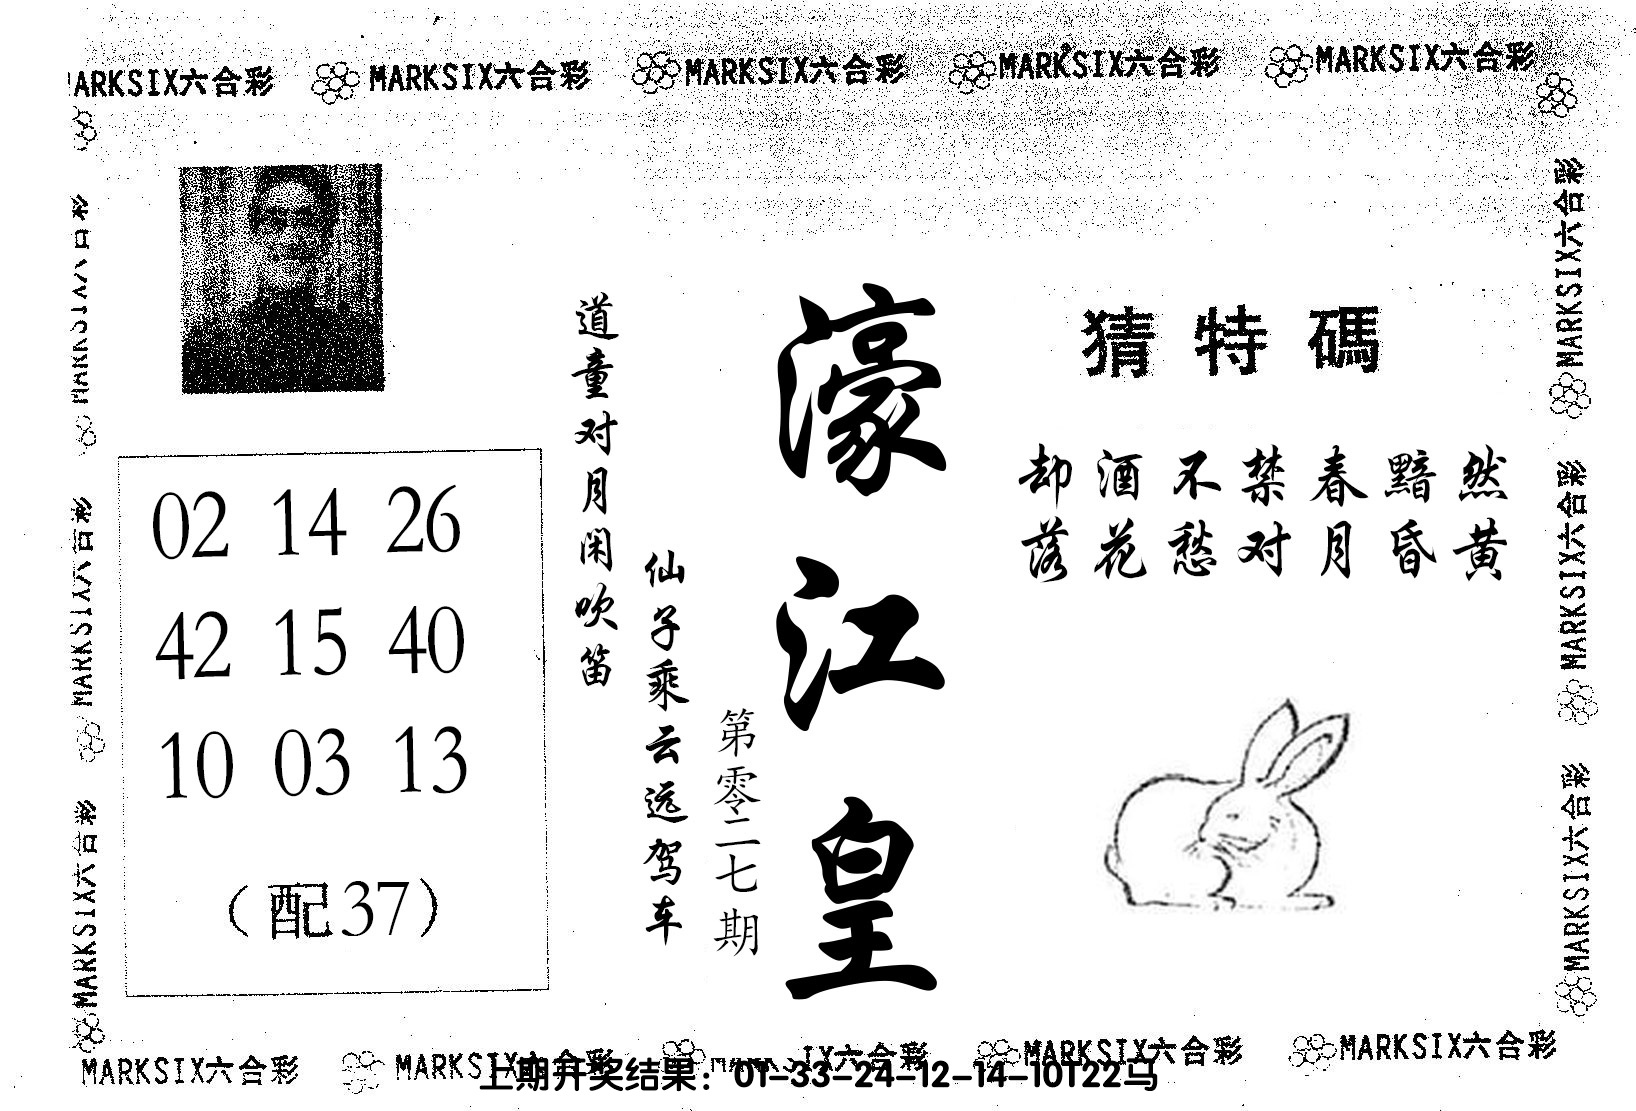 MARKSIX六合彩 MARKSIX六合彩 MARKSIX六合彩 MARKSIX六合彩 MARKSIX六合彩
猜特碼
却酒不禁春黯然
落花愁对月昏黄
濠江皇
第零二七期
道童对月闲吹笛
仙子乘云远驾车
02 14 26
42 15 40
10 03 13
（配37）
MARKSIX六合彩
MARKSIX六合彩
MARKSIX六合彩
MARKSIX六合彩
MARKSIX六合彩
MARKSIX六合彩
MARKSIX六合彩 MARKSIX六合彩 MARKSIX六合彩 MARKSIX六合彩 MARKSIX六合彩
上期开奖结果：01-33-24-12-14-10T22马